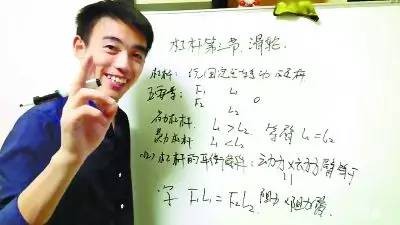 杠杆第二节,滑轮.
杠杆: 绕固定点转动 硬杆
五要素: F₁ L₁
F₂ L₂ O
省力杠杆 L₁ > L₂ 等臂 L₁ = L₂
费力杠杆 L₁ < L₂
杠杆的平衡条件: 动力×动力臂等于
F₁L₁ = F₂L₂ 阻力×阻力臂.